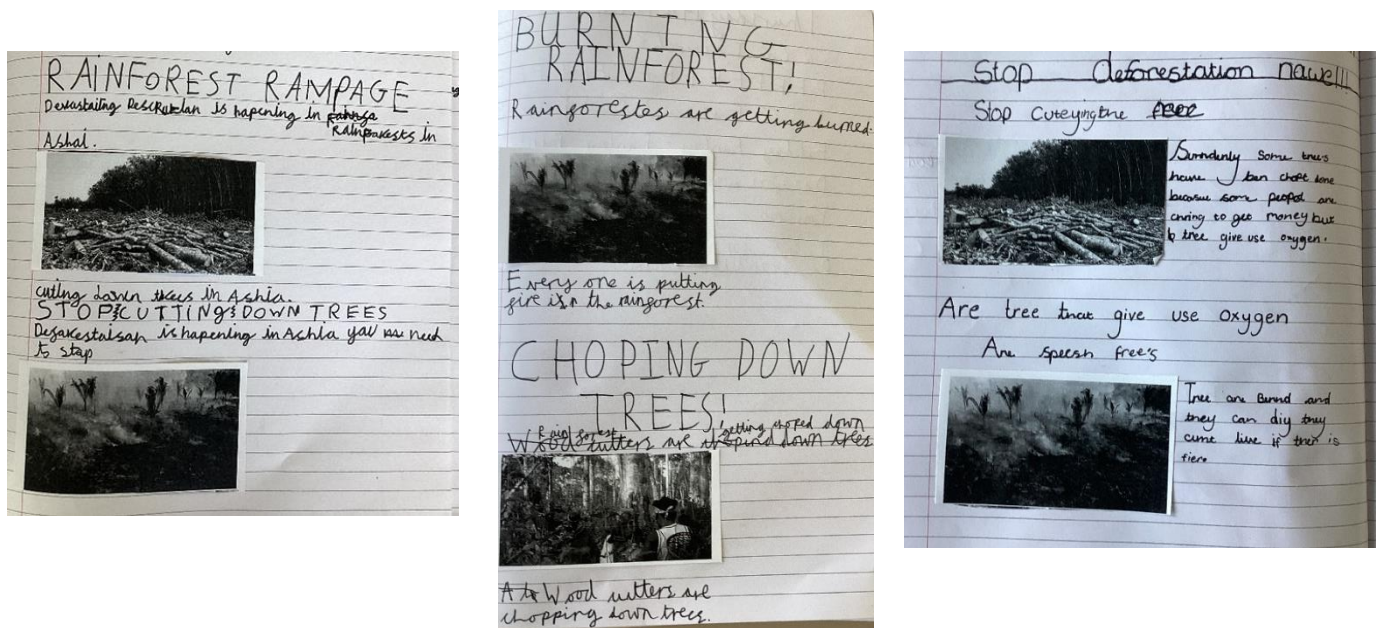 RAINFOREST RAMPAGE
Devastating is hapening in
Rainforests in
Ashai.
cutting down trees in Ashia.
STOP CUTTING DOWN TREES
is hapening in Ashia you need
to stop
BURNING
RAINFOREST!
Rainforestes are getting burned.
Every one is putting
fire in the rainforest.
CHOPING DOWN
TREES!
Rain forest getting choped down
Wood cutters are down trees
Wood cutters are
chopping down trees.
Stop deforestation nawe!!!
Stop Cuteyingthe
Surndenly some trees
have ben chopt done
because some peopol are
to get money but
tree give use oxygen.
Are tree that give use oxygen
Are speesh free's
Tree are Bunnd and
they can diy they
cane live if ther is
fiere